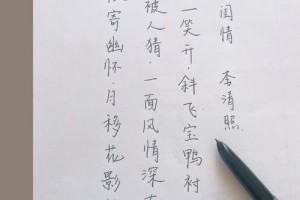 闺情 李清照
一笑开·斜飞宝鸭衬
被人猜·一面风情深
寄幽怀·月移花影